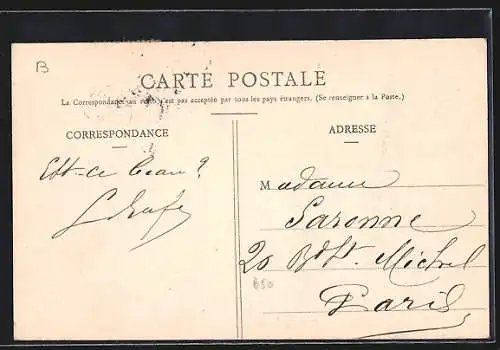 B
CARTE POSTALE
La Correspondance au recto n'est pas acceptée par tous les pays étrangers. (Se renseigner à la Poste.)
CORRESPONDANCE
Est-ce beau ?
ADRESSE
Madame
Saronne
20 Bd St. Michel
Paris
B50